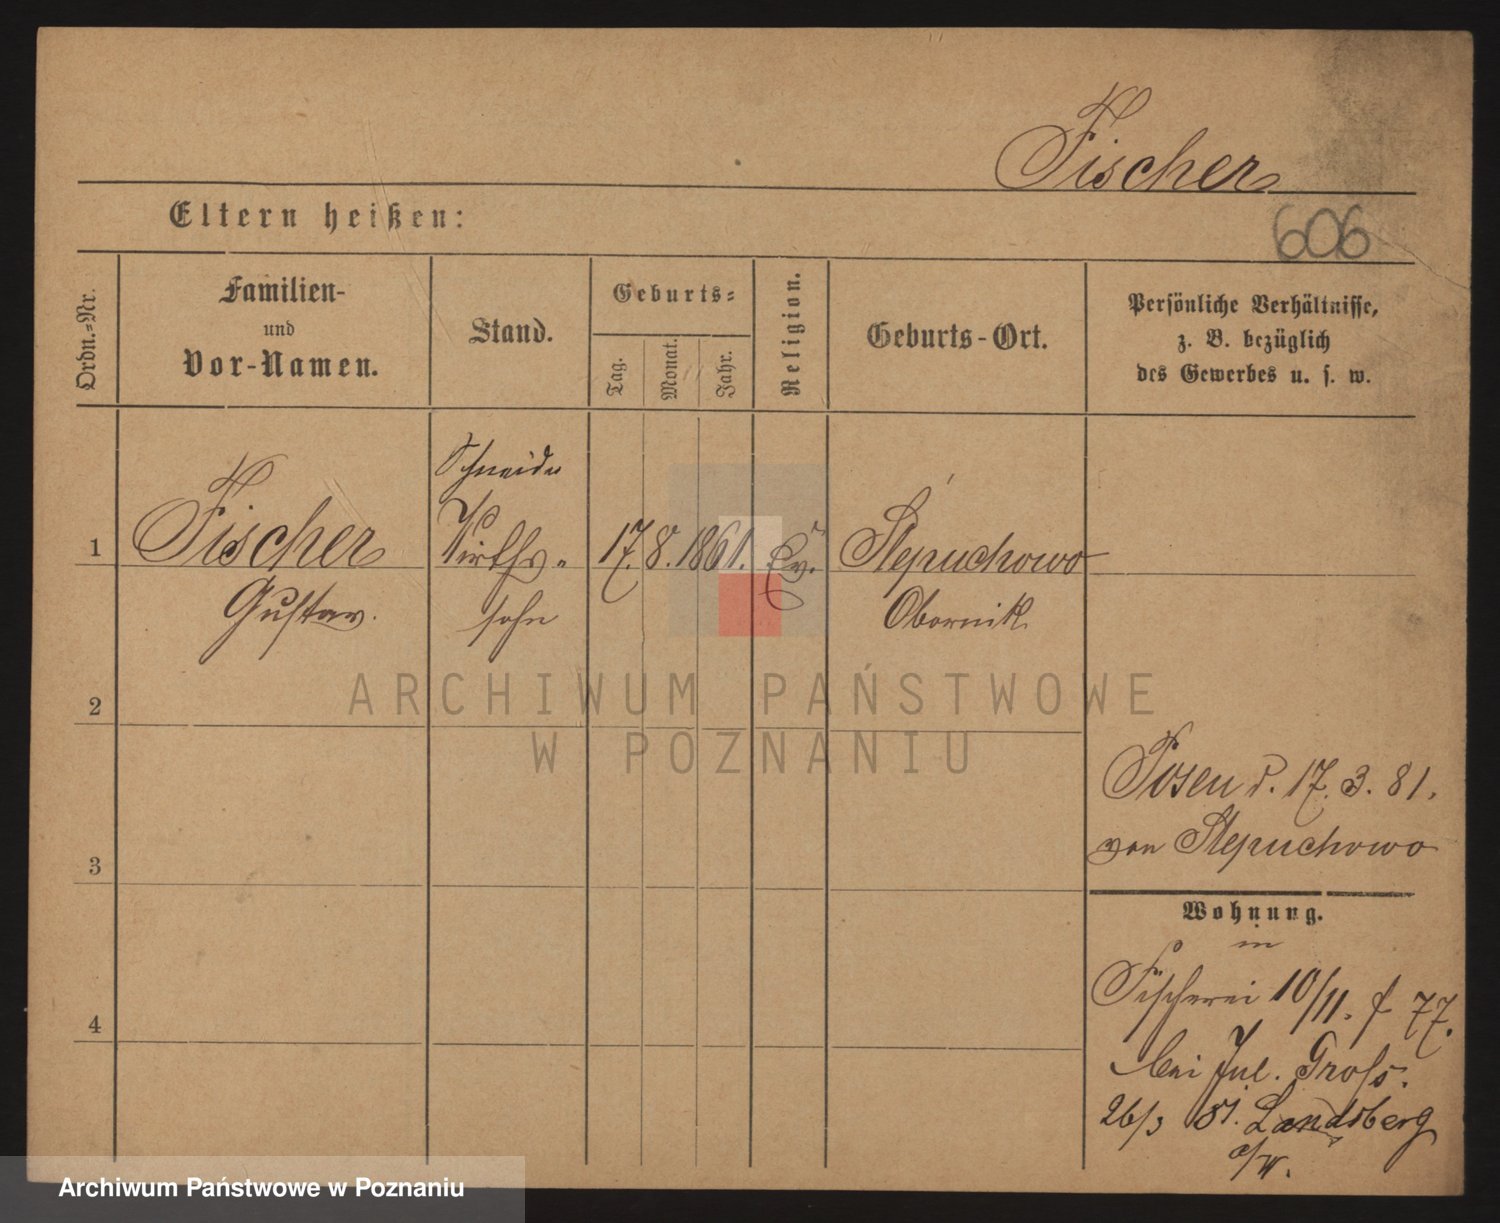 Fischer
606
Eltern heißen:
Ordn.=Nr.
Familien-
und
Vor-Namen.
Stand.
Geburts=
Tag.
Monat.
Jahr.
Religion.
Geburts-Ort.
Persönliche Verhältnisse,
z. B. bezüglich
des Gewerbes u. s. w.
1
Fischer
Gustav.
Schneider
Wirths-
sohn
17. 8. 1861.
Ev.
Stepuchowo
Obornik
2
3
4
Posen d. 17. 3. 81.
von Stepuchowo
Wohnung.
in
Fischerei 10/11. f 77.
bei Jul. Gross.
26/3 81. Landsberg
a/W.
ARCHIWUM PAŃSTWOWE
W POZNANIU
Archiwum Państwowe w Poznaniu